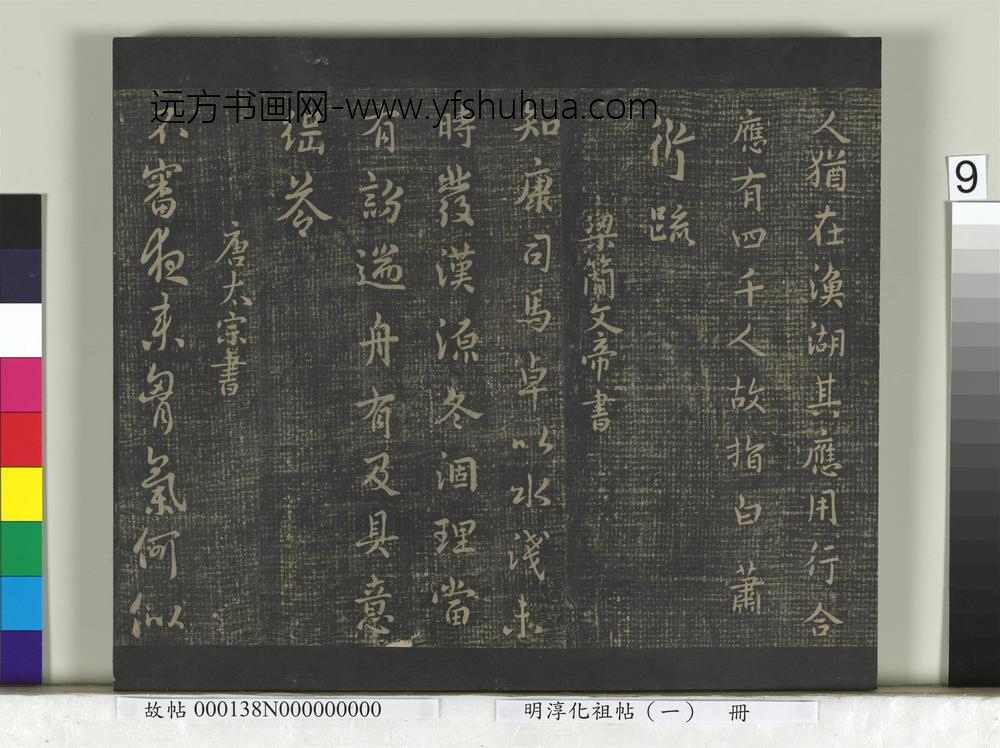 人猶在漁湖其應用行合
應有四千人故指白蕭
衍疏
梁簡文帝書
知康司馬卓以水淺未
時發漢源冬涸理當
有訪遄舟有及具意
瑶苓
唐太宗書
不審夜来胷氣何似
远方书画网-www.yfshuhua.com
9
故帖 000138N000000000
明淳化祖帖（一） 冊